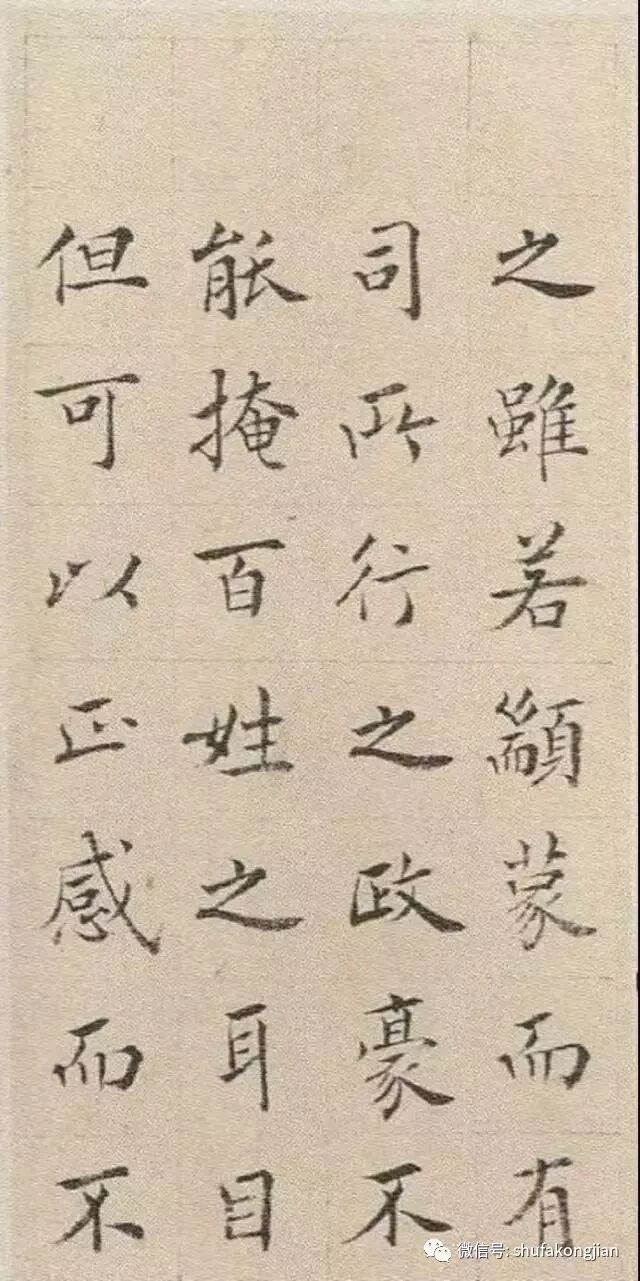 之雖若顓蒙而有
司所行之政豪不
能掩百姓之耳目
但可以正感而不
微信号: shufakongjian